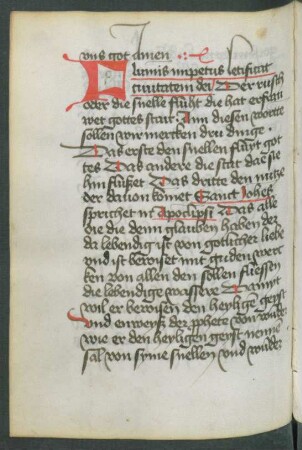 vns got amen
Flumis impetus letificat
ciuitatem dei Der rusch
oder die snelle fluht die hat erfrau
wet gottes stat An diesen worten
sollen wir mercken dru dinge
Das erste den snellen fluzt got
tes Das andere die stat dae sie
hin flußet Das dritte den nutze
der dauon komet Sant Johes
sprichet in apocalipsi Das alle
die die denn glauben haben der
da lebendig ist von gotlicher liebe
vnd ist beweiset mit guden werc
ken von allen den sollen fliessen
die lebendige wassere Damit
wil er bewisen den heylige geyst
vnd der prophete von
wie er den heyligen geyst nenne
sal von syme snellen vnd